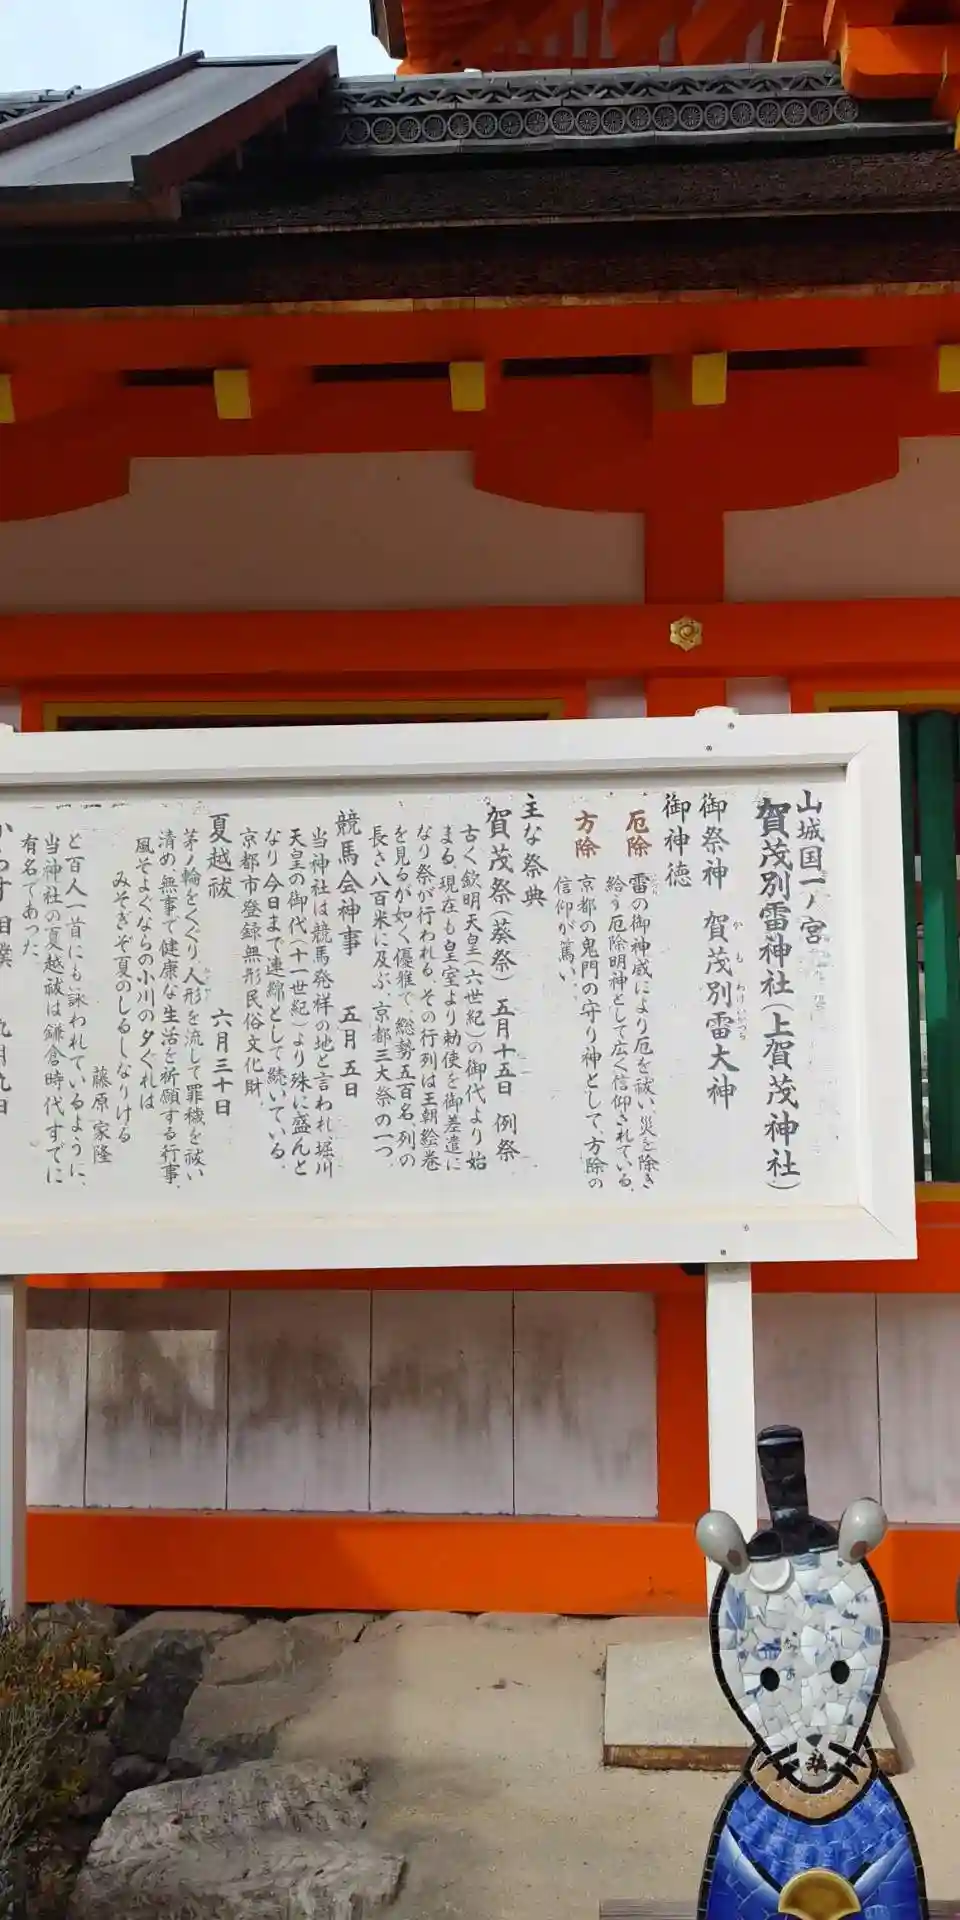 山城国一ノ宮
賀茂別雷神社(上賀茂神社)
御祭神 賀茂別雷大神
かもわけいかづち
御神徳
厄除 雷の御神威により厄を祓い、災を除き
給う厄除明神として広く信仰されている。
方除 京都の鬼門の守り神として、方除の
信仰が篤い。
主な祭典
賀茂祭(葵祭) 五月十五日 例祭
古く欽明天皇(六世紀)の御代より始
まる。現在も皇室より勅使を御差遣に
なり祭が行われる。その行列は王朝絵巻
を見るが如く優雅で、総勢五百名、列の
長さ八百米に及ぶ、京都三大祭の一つ。
競馬会神事 五月五日
当神社は競馬発祥の地と言われ堀川
天皇の御代(十一世紀)より殊に盛んと
なり今日まで連綿として続いている。
京都市登録無形民俗文化財。
夏越祓 六月三十日
茅ノ輪をくぐり人形を流して罪穢を祓い
清め、無事で健康な生活を祈願する行事。
風そよぐならの小川の夕ぐれは
みそぎぞ夏のしるしなりける
藤原家隆
と百人一首にも詠われているように、
当神社の夏越祓は鎌倉時代すでに
有名であった。
九月九日